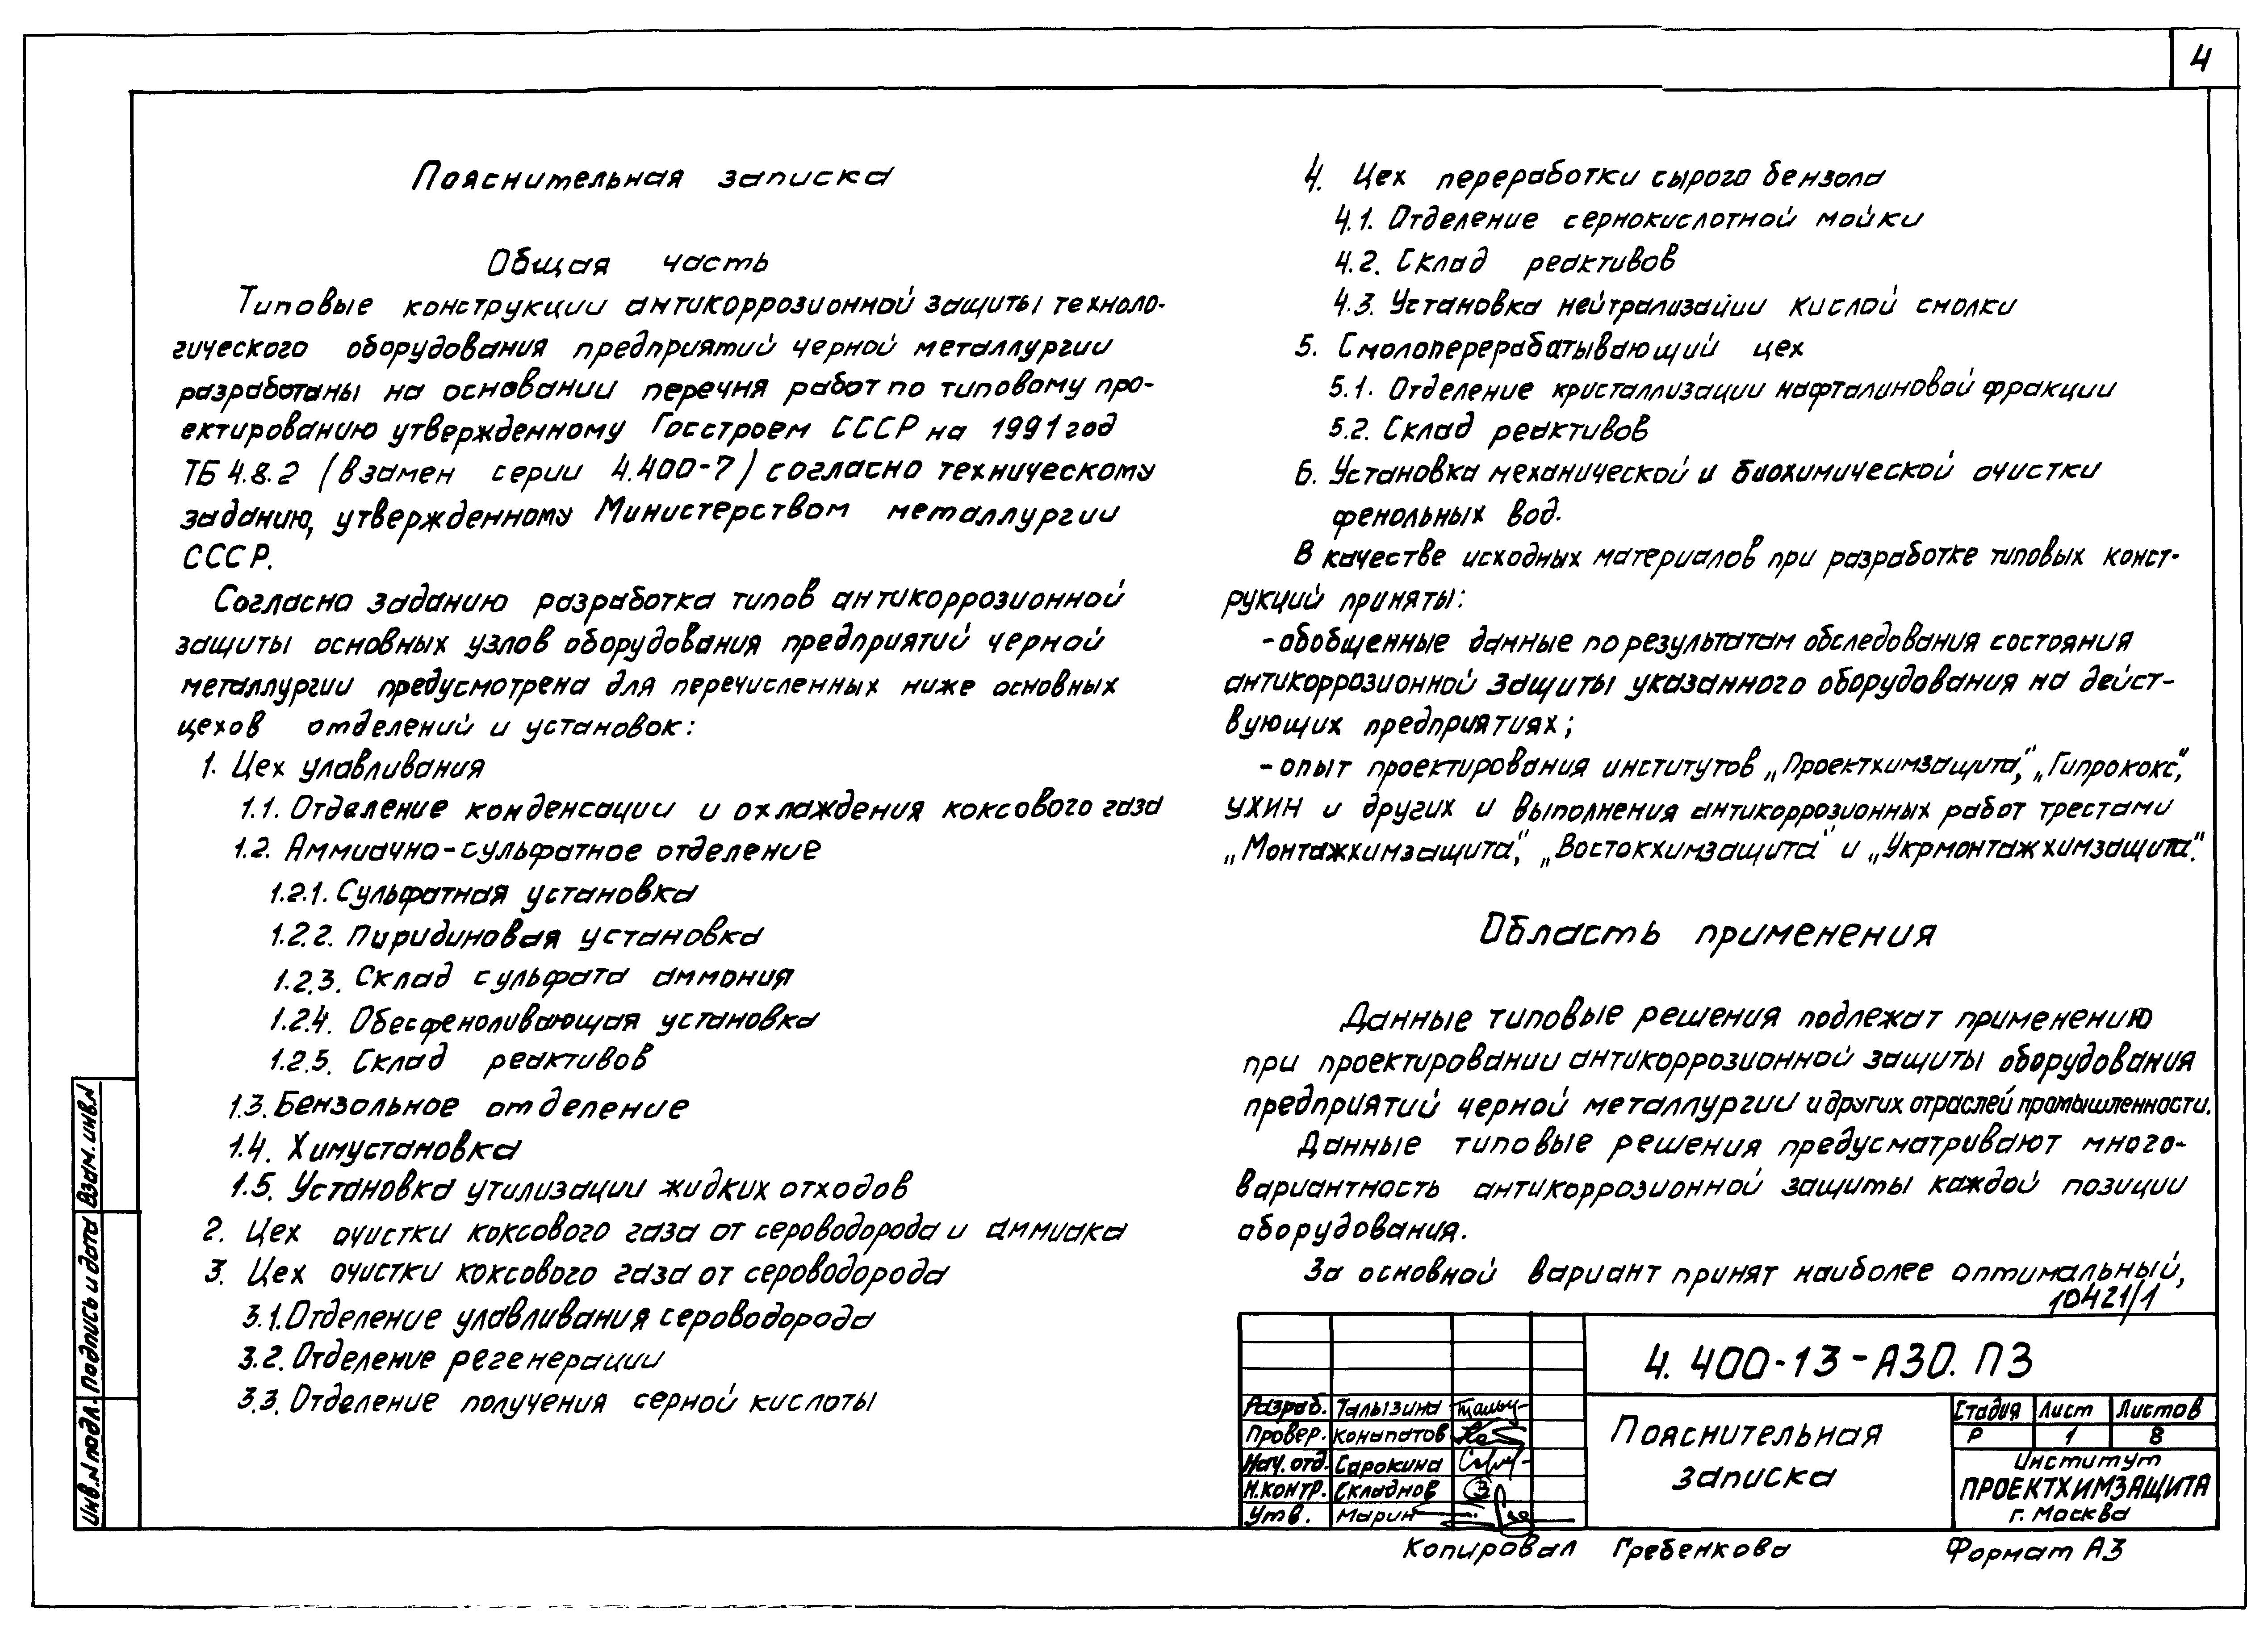 4
Пояснительная записка
Общая часть
Типовые конструкции антикоррозионной защиты техноло-
гического оборудования предприятий черной металлургии
разработаны на основании перечня работ по типовому про-
ектированию утвержденному Госстроем СССР на 1991 год
ТБ 4.8.2 (взамен серии 4.400-7) согласно техническому
заданию, утвержденному Министерством металлургии
СССР.
Согласно заданию разработка типов антикоррозионной
защиты основных узлов оборудования предприятий черной
металлургии предусмотрена для перечисленных ниже основных
цехов отделений и установок:
1. Цех улавливания
1.1. Отделение конденсации и охлаждения коксового газа
1.2. Аммиачно-сульфатное отделение
1.2.1. Сульфатная установка
1.2.2. Пиридиновая установка
1.2.3. Склад сульфата аммония
1.2.4. Обесфеноливающая установка
1.2.5. Склад реактивов
1.3. Бензольное отделение
1.4. Химустановка
1.5. Установка утилизации жидких отходов
2. Цех очистки коксового газа от сероводорода и аммиака
3. Цех очистки коксового газа от сероводорода
3.1. Отделение улавливания сероводорода
3.2. Отделение регенерации
3.3. Отделение получения серной кислоты
4. Цех переработки сырого бензола
4.1. Отделение сернокислотной мойки
4.2. Склад реактивов
4.3. Установка нейтрализации кислой смолки
5. Смолоперерабатывающий цех
5.1. Отделение кристаллизации нафталиновой фракции
5.2. Склад реактивов
6. Установка механической и биохимической очистки
фенольных вод.
В качестве исходных материалов при разработке типовых конст-
рукций приняты:
-обобщенные данные по результатам обследования состояния
антикоррозионной защиты указанного оборудования на дейст-
вующих предприятиях;
-опыт проектирования институтов „Проектхимзащита", „Гипрококс",
УХИН и других и выполнения антикоррозионных работ трестами
„Монтажхимзащита", „Востокхимзащита" и „Укрмонтажхимзащита".
Область применения
Данные типовые решения подлежат применению
при проектировании антикоррозионной защиты оборудования
предприятий черной металлургии и других отраслей промышленности.
Данные типовые решения предусматривают много-
вариантность антикоррозионной защиты каждой позиции
оборудования.
За основной вариант принят наиболее оптимальный,
10421/1
4.400-13-АЗО.ПЗ
Разраб. Талызина
Провер. Конапатов
Нач. отд. Сарокина
Н.контр. Складнов
Утв. Марин
Пояснительная
записка
Стадия Лист Листов
Р 1 8
Институт
ПРОЕКТХИМЗАЩИТА
г. Москва
Копировал Гребенкова Формат А3
Инв.N подл. Подпись и дата Взам.инв.N